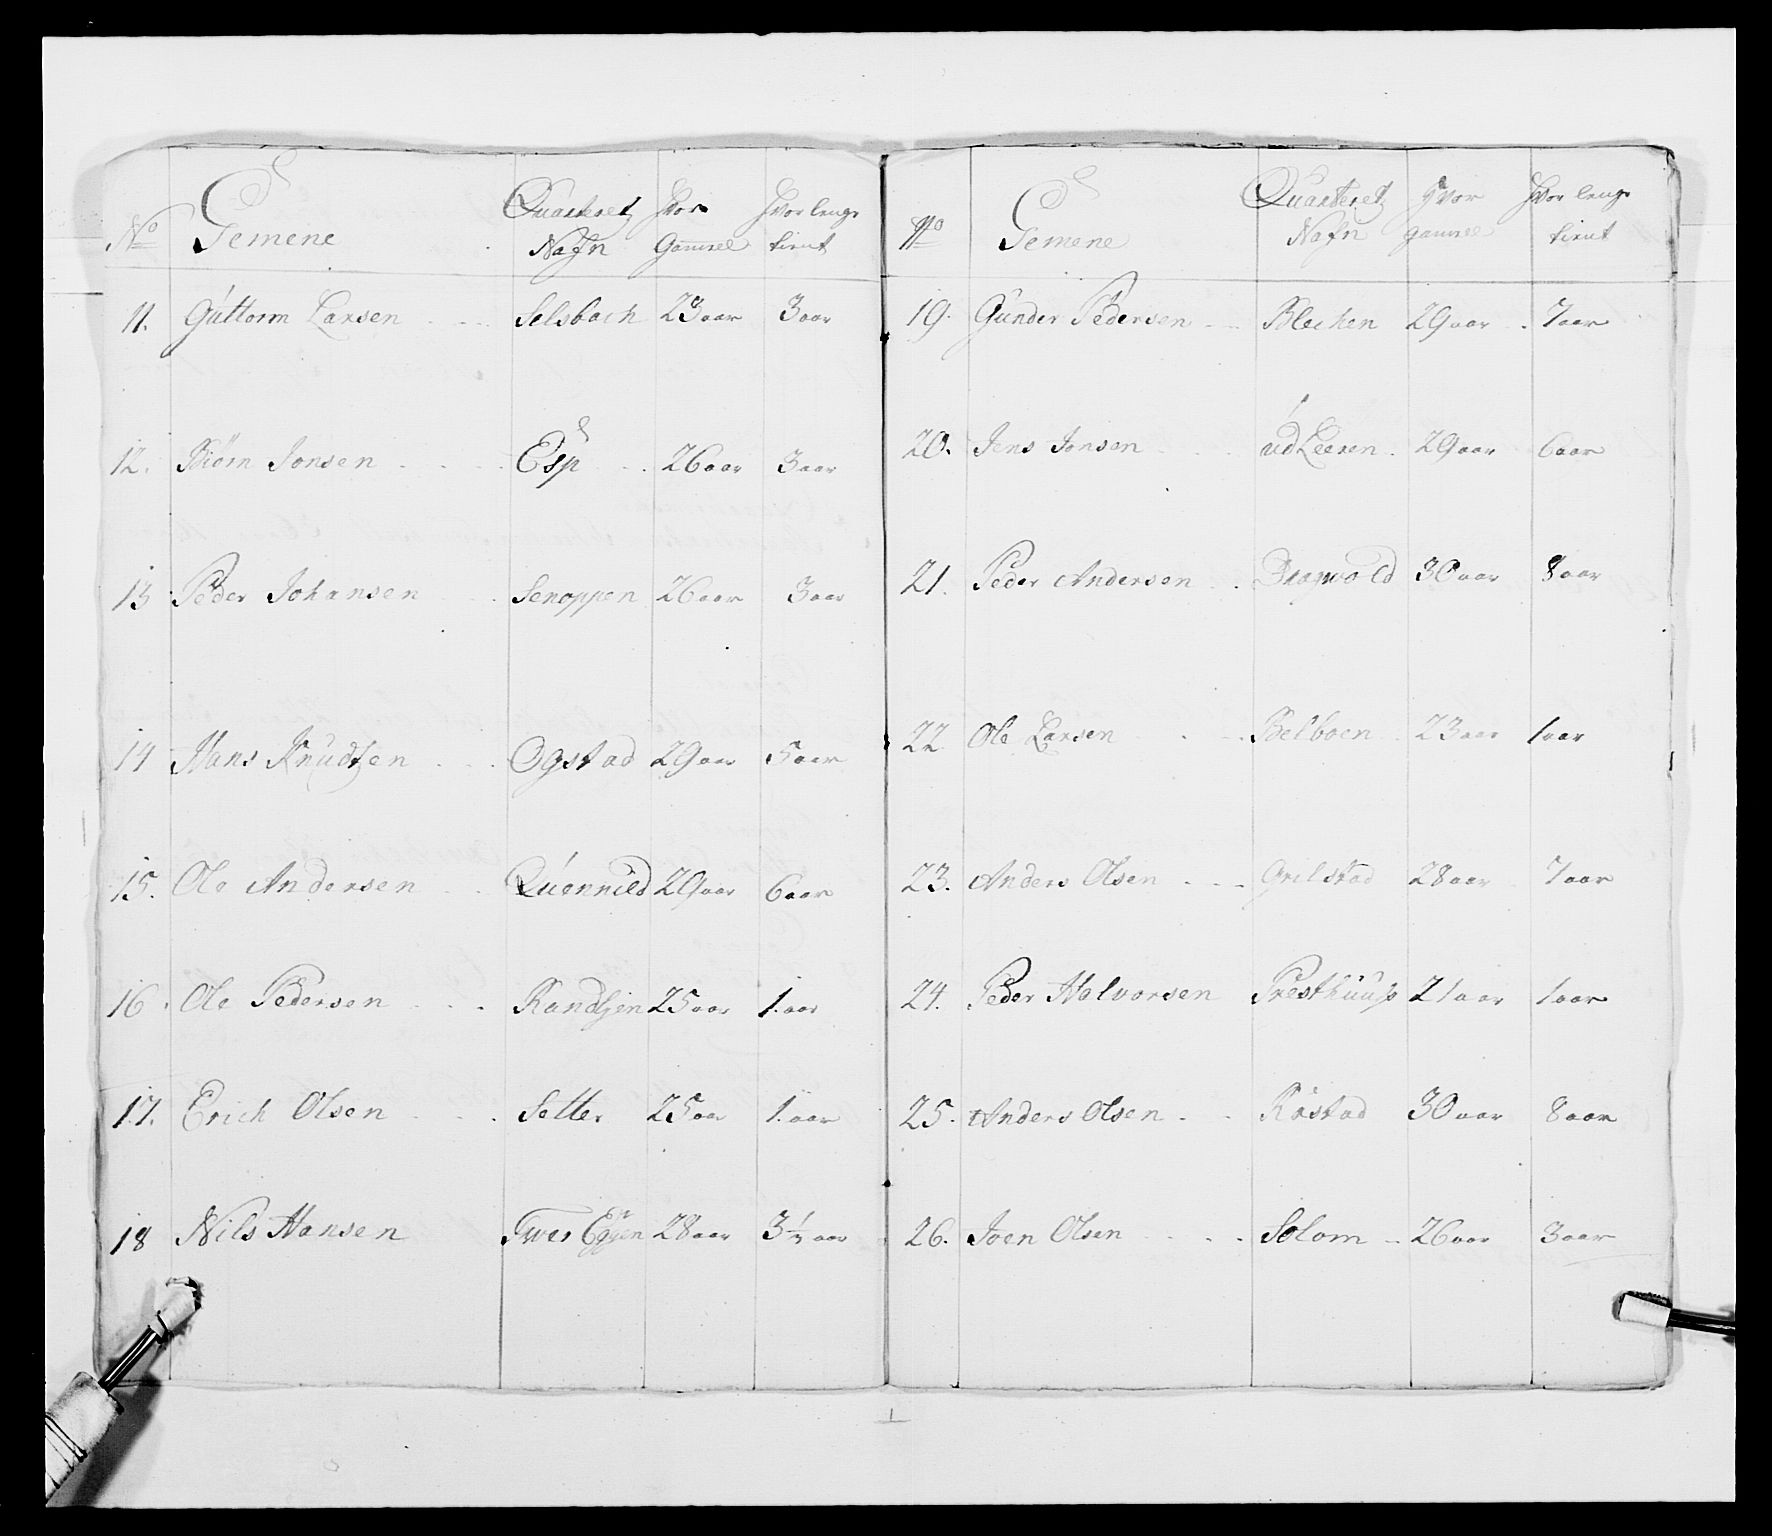 No Gemene Quarteretz Nafn Hvor Gammel Hvor lenge tient
11. Guttorm Larsen Selsbach 23 aar 3 aar
12. Biörn Jonsen Esp 26 aar 3 aar
13 Peder Johansen Senoppen 26 aar 3 aar
14 Hans Knudtzen Ogstad 29 aar 5 aar
15. Ole Andersen Quennild 29 aar 6 aar
16. Ole Pedersen Randljen 25 aar 1. aar
17. Erich Olsen Setter 25 aar 1. aar
18 Nils Hansen Twer Eggen 28 aar 3 1/2 aar
No Gemene Quarteretz Nafn Hvor gammel Hvor lenge tient
19. Gunder Pedersen Blechen 29 aar 7 aar
20. Jens Jonsen ud Leeren 29 aar 6 aar
21. Peder Andersen Dragvold 30 aar 8 aar
22 Ole Larsen Belboen 23 aar 1 aar
23. Anders Olsen Grilstad 28 aar 7 aar
24. Peder Halvorsen Presthuus 21 aar 1 aar
25. Anders Olsen Röstad 30 aar 8 aar
26. Joen Olsen Solom 26 aar 3 aar